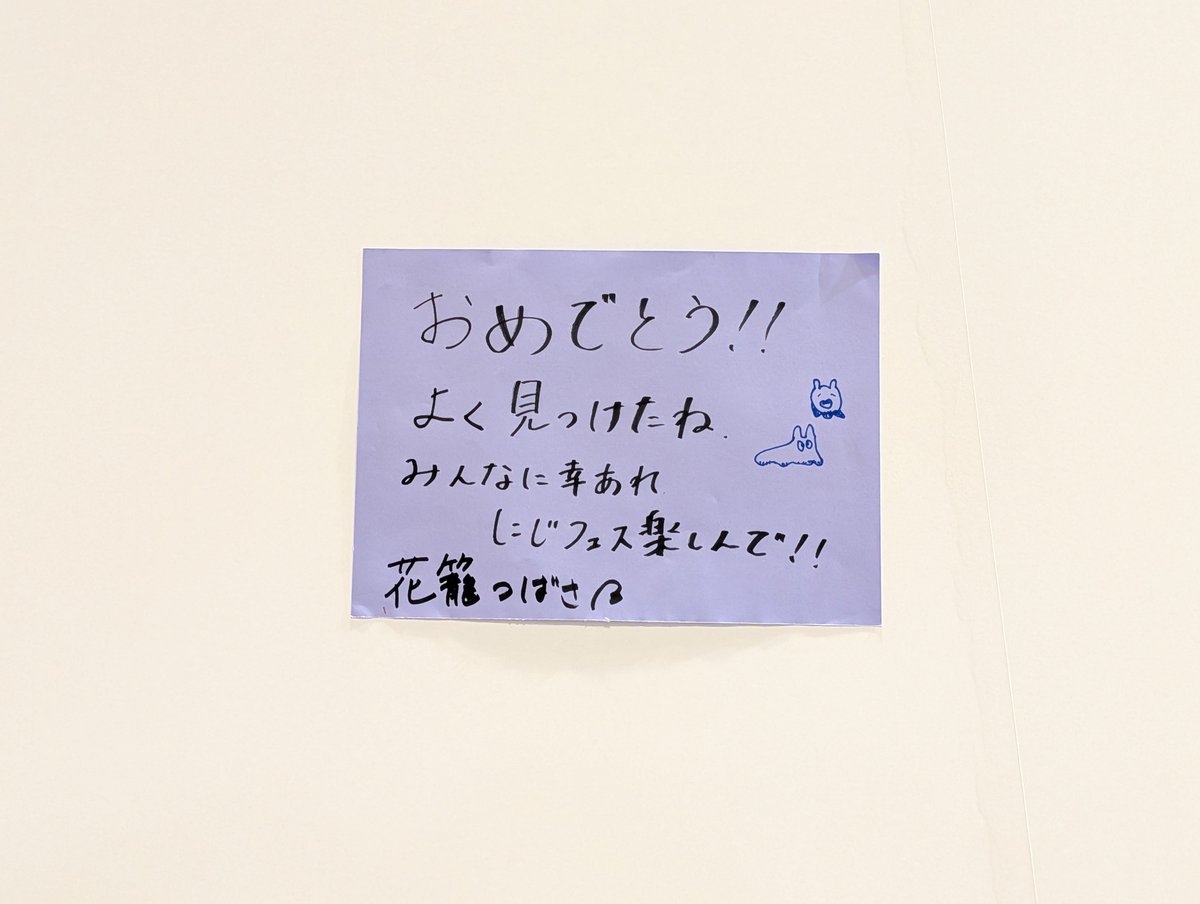 おめでとう!!
よく見つけたね.
みんなに幸あれ
にじフェス楽しんで!!
花籠つばさ